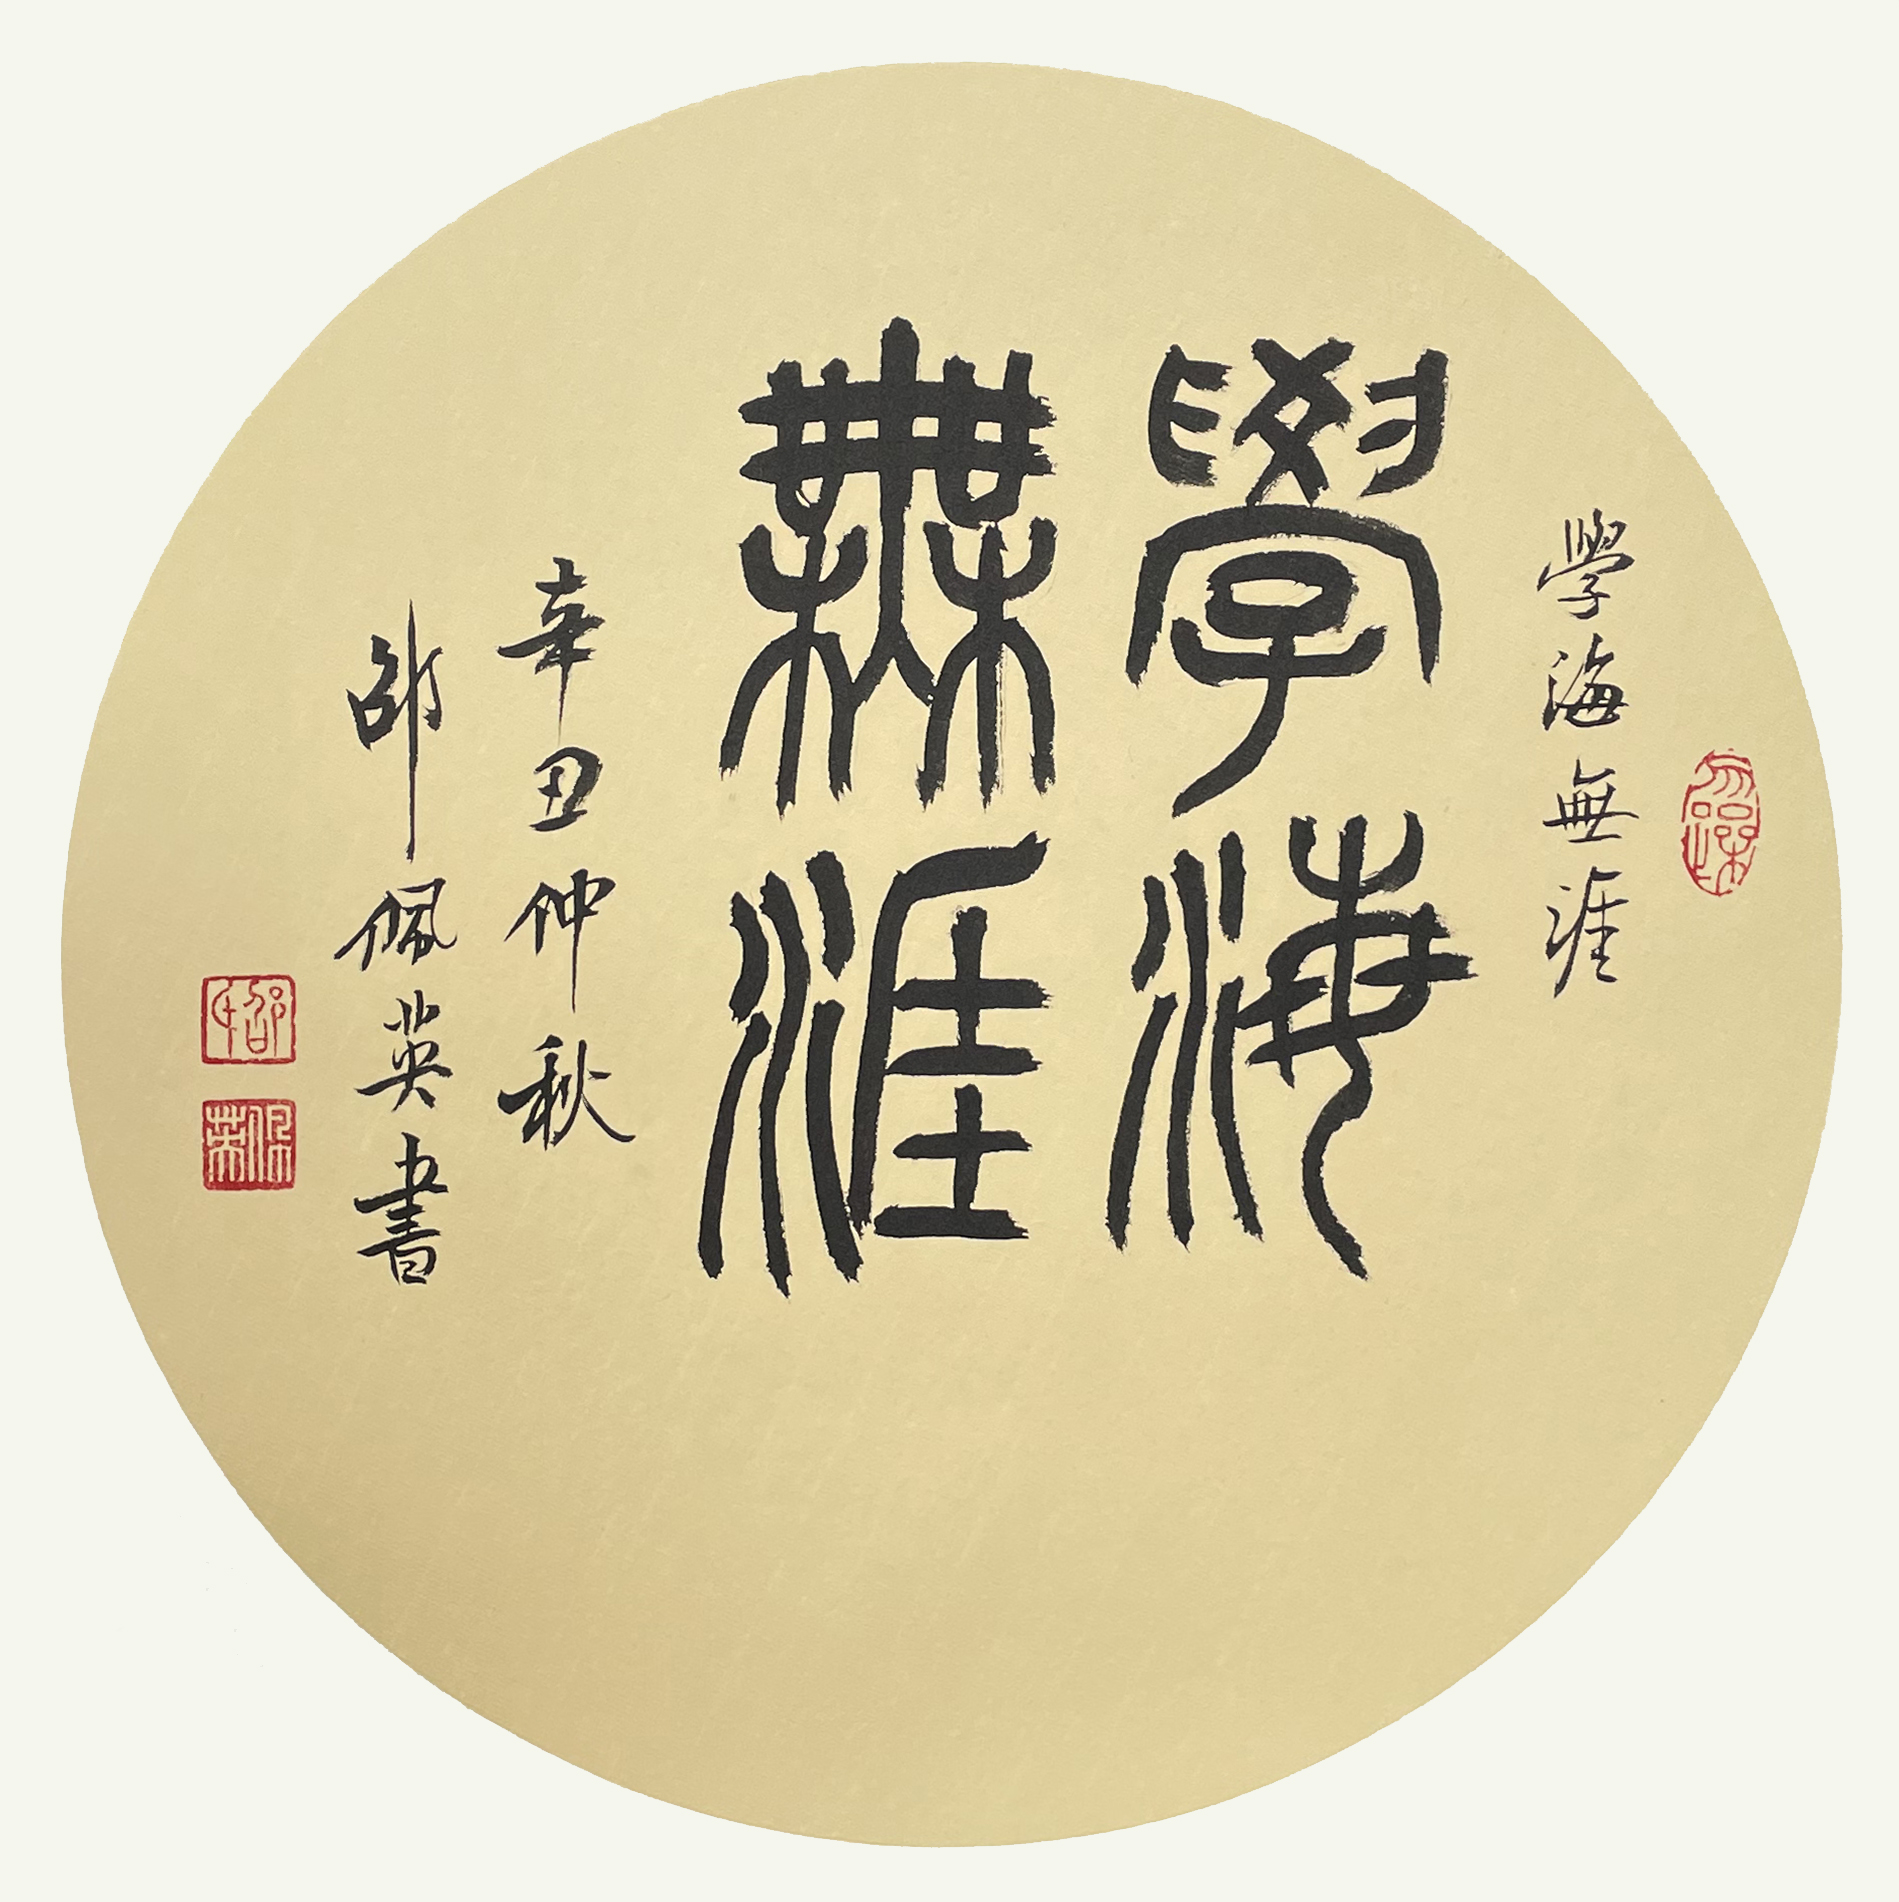 學海無涯
學海
無涯
辛丑仲秋
邵佩英書